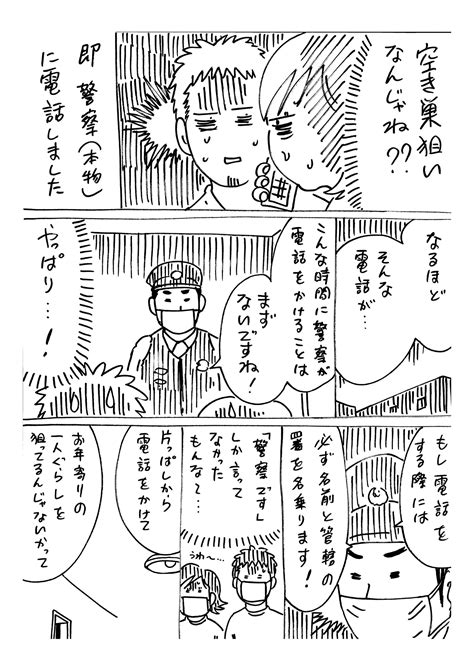 空き巣狙い
なんじゃね??
即 警察(本物)
に電話しました
なるほど
そんな
電話が…
こんな時間に警察が
電話をかけることは
まず
ないですね!
やっぱり…!
もし電話を
する際には
必ず名前と管轄の
署を名乗ります!
「警察です」
しか言って
なかった
もんな〜…
うわ〜…
片っぱしから
電話をかけて
お年寄りの
一人ぐらしを
狙ってるんじゃないかって